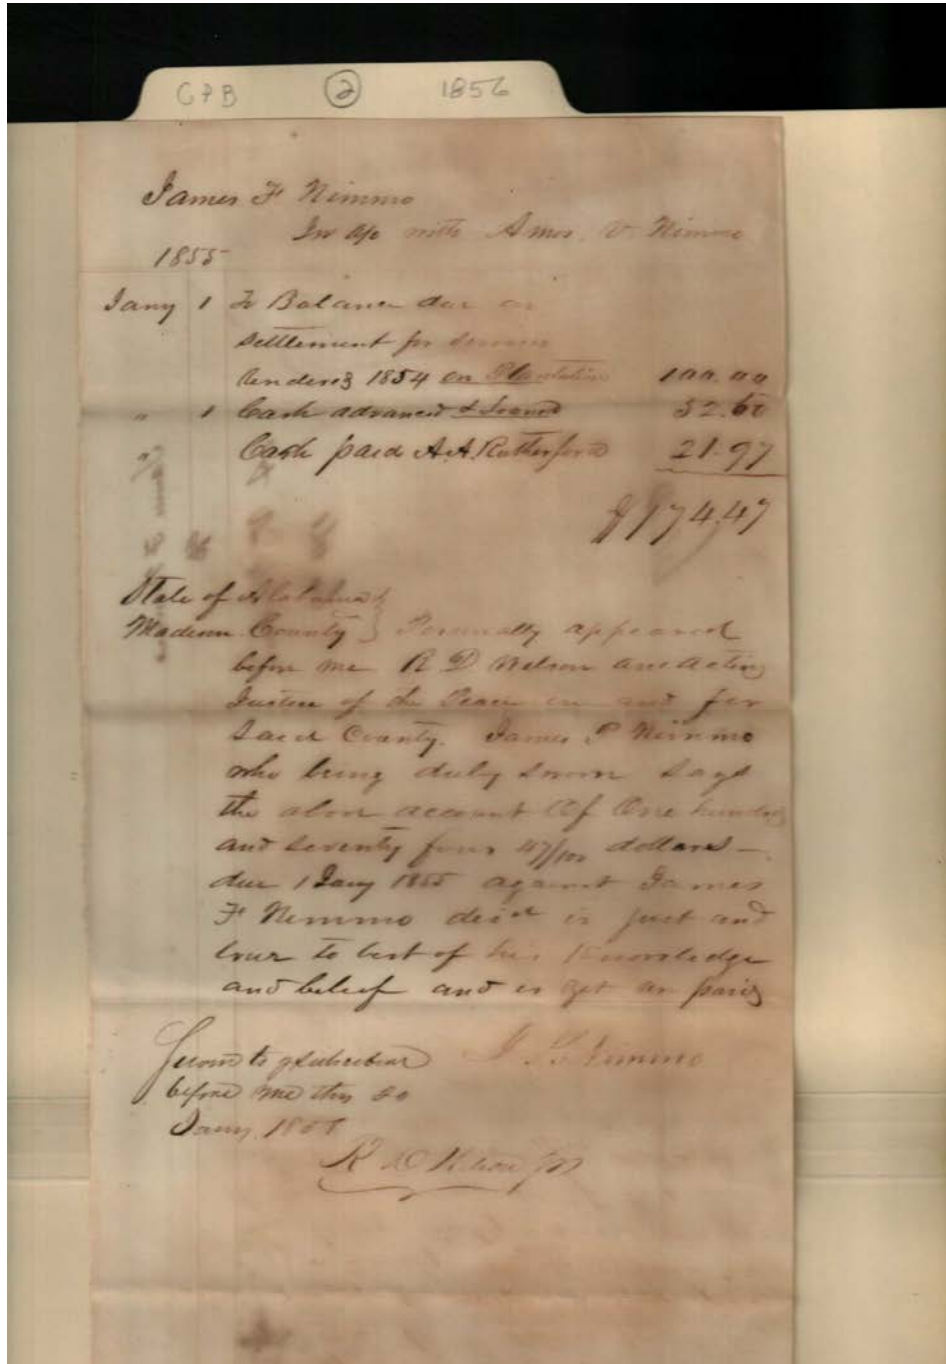 CPB 2 1856
James F Nimmo
In a/c with Amos. V Nimmo
1855
Jany 1 To Balance due on
settlement for services
rendered 1854 on Plantation 100.00
" 1 Cash advanced & loaned 52.50
" Cash paid A.A. Rutherford 21.97
$174,47
State of Alabama }
Madison County } Personally appeared
before me R D Wilson an acting
Justice of the Peace in and for
said County. James P Nimmo
who being duly sworn says
the above account of One hundred
and seventy four 47/100 dollars —
due 1 Jany 1855 against James
F Nimmo decd is just and
true to best of his Knowledge
and belief and is yet un paid
Sworn to & subscribed J. P. Nimmo
before me this
Jany. 1856
R D Wilson JP